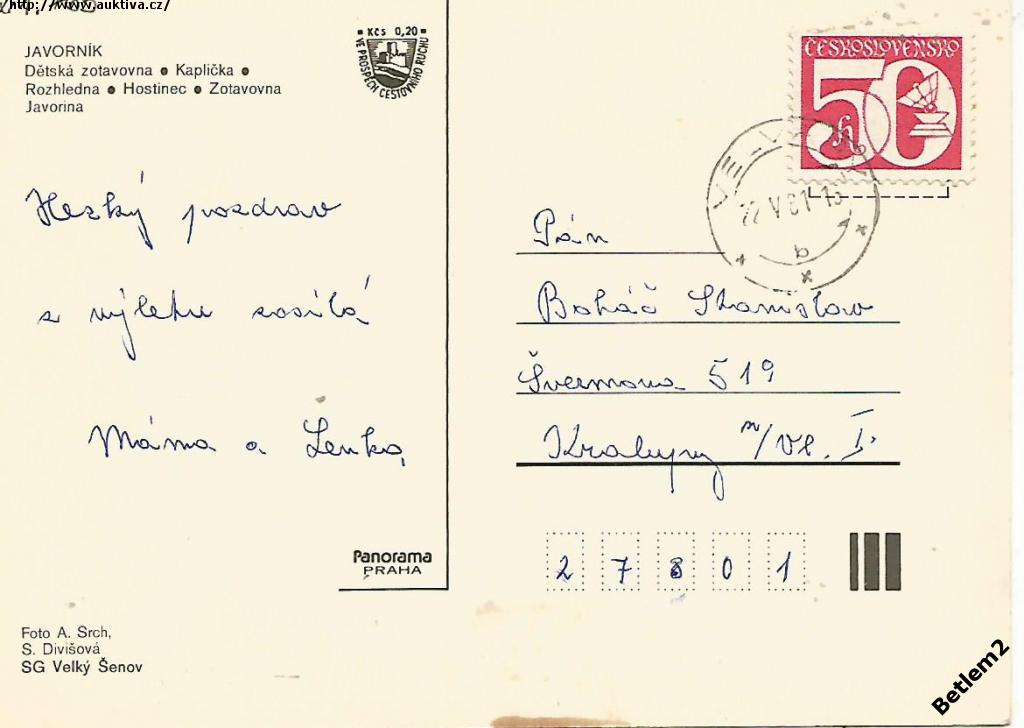 http://www.auktiva.cz/
JAVORNÍK
Dětská zotavovna • Kaplička •
Rozhledna • Hostinec • Zotavovna
Javorina
Kčs 0,20
VE PROSPĚCH CESTOVNÍHO RUCHU
ČESKOSLOVENSKO
50 h
22. V. 81-13
b
Hezký pozdrav
z výletu zasílá
Máma a Lenka
Pán
Boháč Stanislav
Švermova 519
Kralupy n/Vl. I.
27801
Panorama
PRAHA
Foto A. Srch,
S. Divišová
SG Velký Šenov
Betlem2